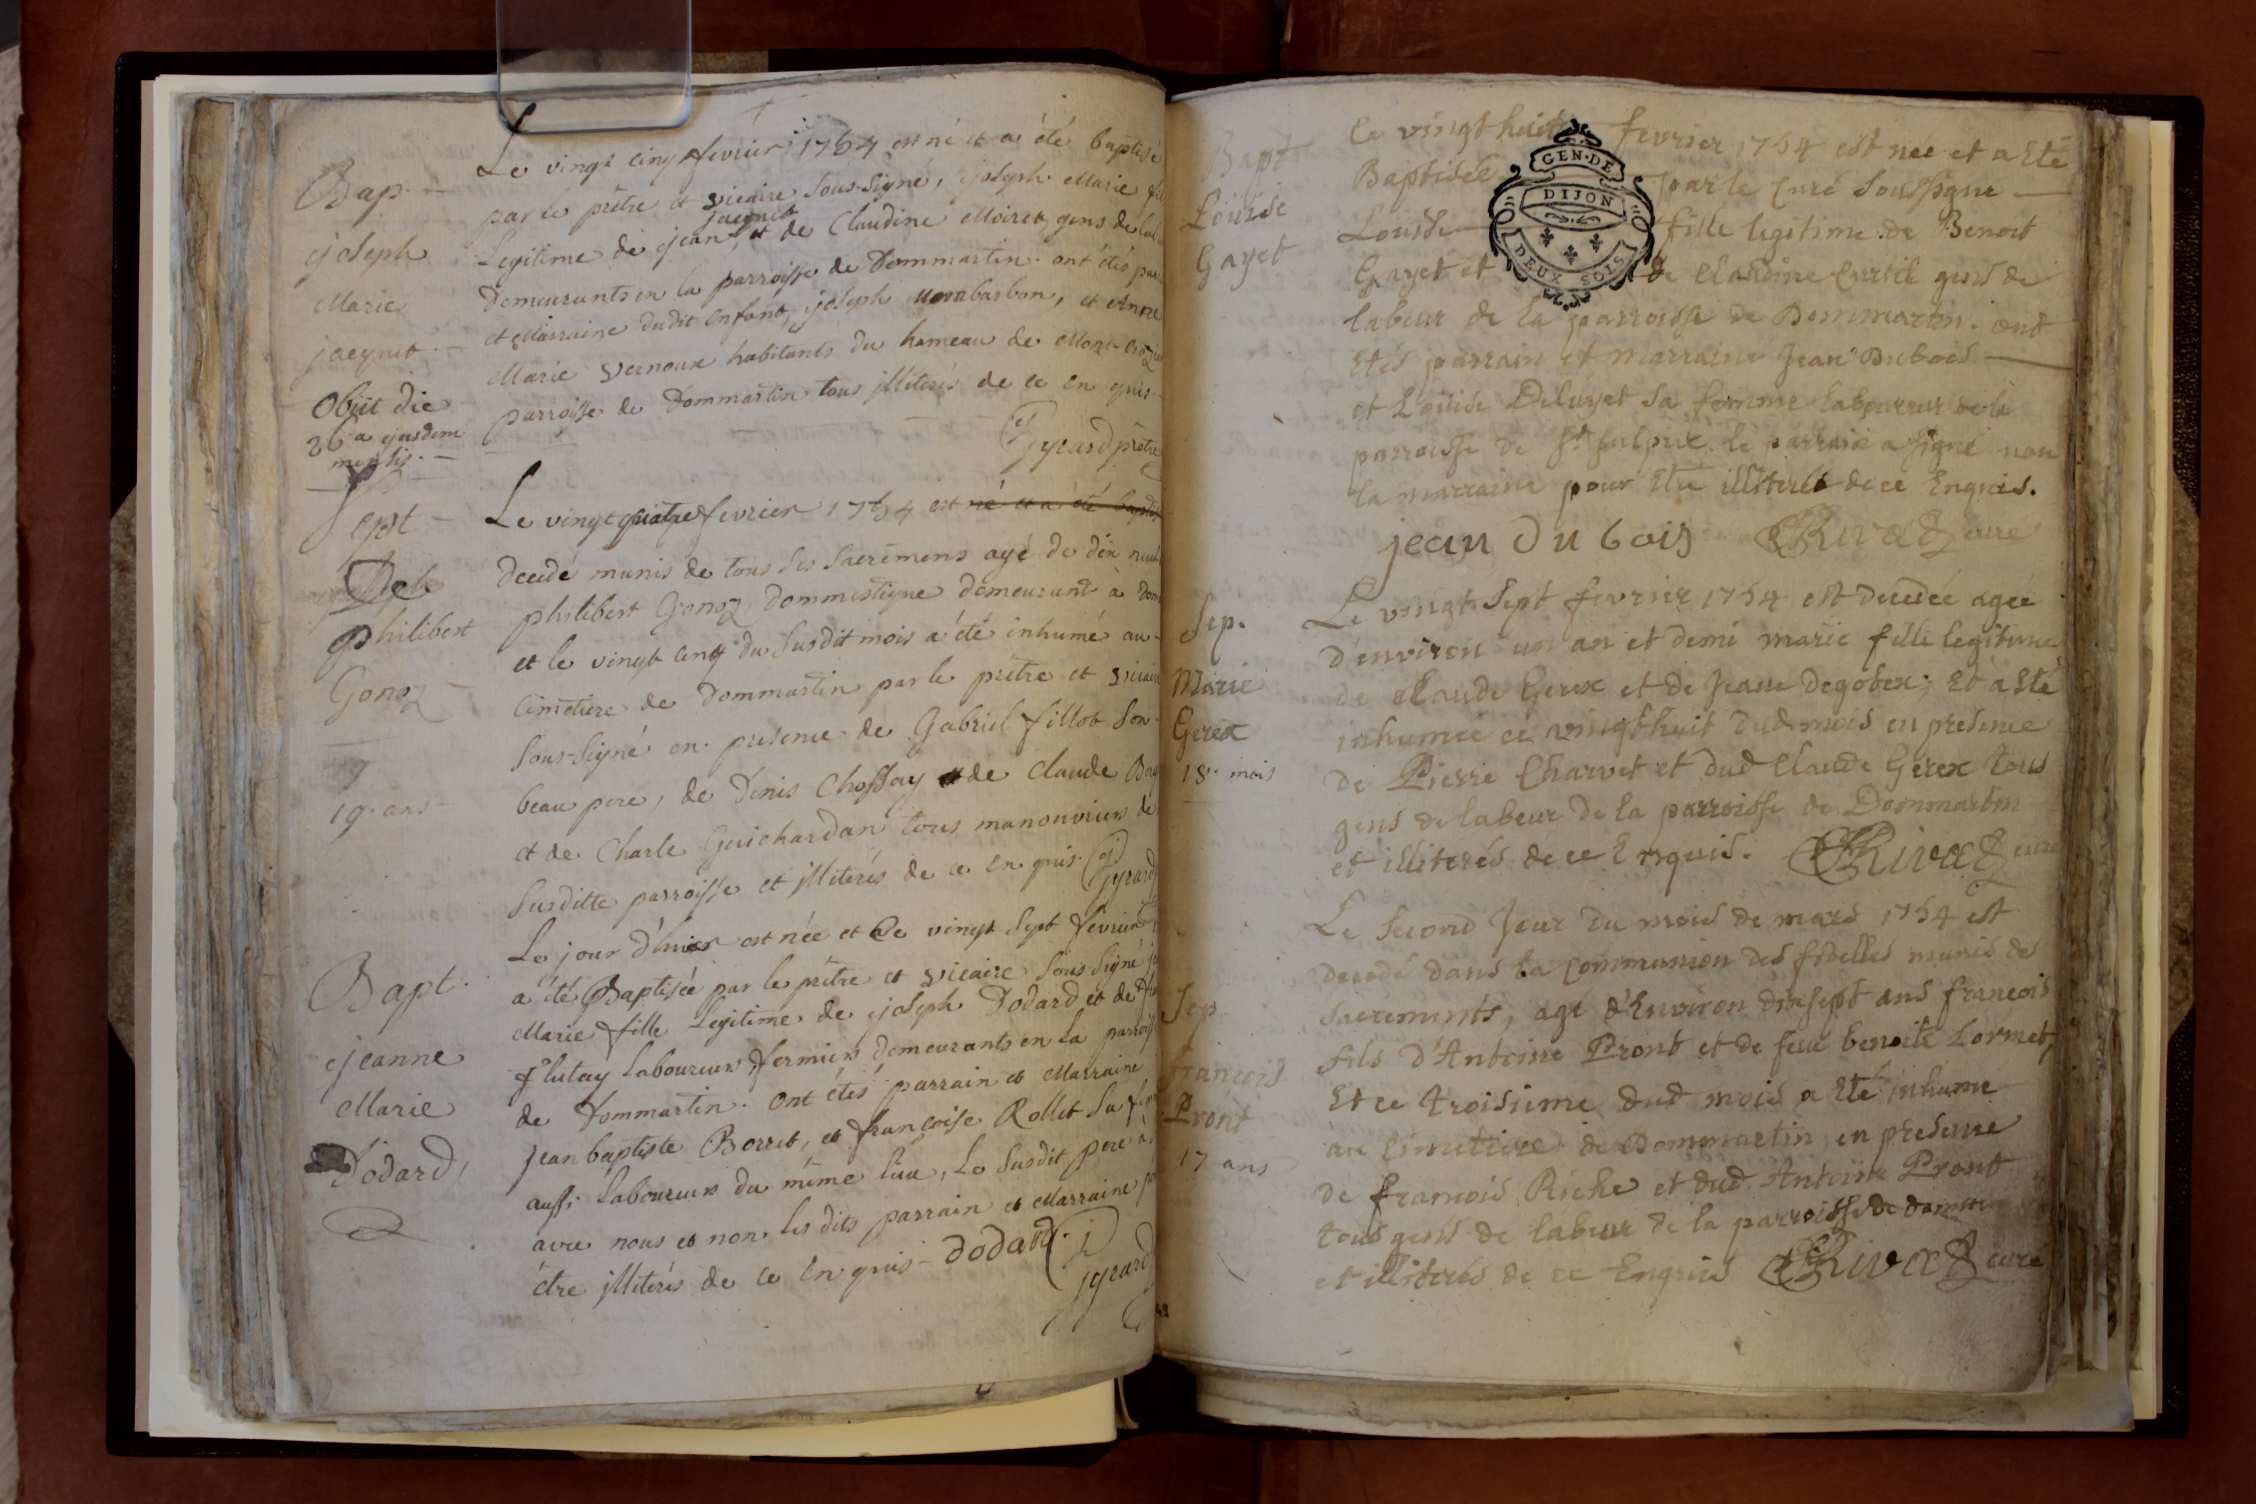 Bap.
joseph
Marie
jacquet.
Obiit die
26a ejusdem
mensis.
Le vingt cinq fevrier 1754 est né et a été baptisé
par le prêtre et vicaire sous-signé, joseph Marie
Legitime de jean jacquet, et de Claudine Moiret gens de
Demeurants en la parroisse de Dommartin. ont étés
et Marraine dudit enfant, joseph, et
Marie Vernoux habitants du hameau de
parroisse de Dommartin tous illiterés de ce en quis
Gyrard prêtre
Sept
Philibert
Gonoz
19. ans
Le vingt quatre fevrier 1754 est né et a été
decedé munis de tous ses sacremens agé de dix neuf
philibert Gonoz Dommestique demeurant à
et le vingt cinq du susdit mois a été inhumé au
Cimetiere de Dommartin par le prêtre et vicaire
sous-signé en presence de Gabriel fillot son
beau pere, de Denis Chossay et de Claude
et de Charle Guichardan tous manouvriers de
susditte parroisse et illiterés de ce en quis. Gyrard
Bapt.
jeanne
Marie
Dodard
Le jour d'hier est née et Ce vingt sept fevrier
a été Baptisée par le prêtre et vicaire sous signé
Marie fille Legitime de joseph Dodard et de
flutay Laboureurs fermiers demeurants en la parroisse
de Dommartin. ont étés parrain et Marraine
jean baptiste Borret, et françoise Rollet sa
aussi Laboureurs du même lieu, Le susdit pere
avec nous et non les dits parrain et Marraine
être illiterés de ce en quis dodard. Gyrard
Bapt
Louise
Gayet
GEN. DE
DIJON
DEUX SOLS
Le vingt huit fevrier 1754 est nee et a Eté
Baptisée par le Curé Soussigne
Louise fille legitime de Benoit
Gayet et de Claudine Curtil gens de
labeur de la parroisse de Dommartin. ont
Etés parrain et marraine Jean Dubois
et Louise Deluyet sa femme laboureur de la
parroisse de St Sulpice. le parrain a signé non
la marraine pour Etre illiterés de ce Enquis.
jean du bois Rivat curé
Sep.
Marie
Gerex
18. mois
Le vingt Sept fevrier 1754 est decedée agée
d'environ un an et demi marie fille legitime
de Claude Gerex et de Jeane Degotex; Et a Eté
inhumée ce vingt huit dud mois en presence
de Pierre Charvet et dud Claude Gerex tous
gens de labeur de la parroisse de Dommartin
et illiterés de ce Enquis. Rivat curé
Sep.
francois
Pront
17 ans
Le Second Jour du mois de mars 1754 est
decedé dans la Communion des fidelles munis des
Sacrements, agé d'Environ dixsept ans francois
fils d'Antoine Pront et de feue benoite Lormet,
Et ce troisième dud mois a Eté inhume
au Cimetiere de Dommartin en presence
de francois Riche et dud Antoine Pront
tous gens de labeur de la parroisse de
et illiterés de ce Enquis Rivat curé